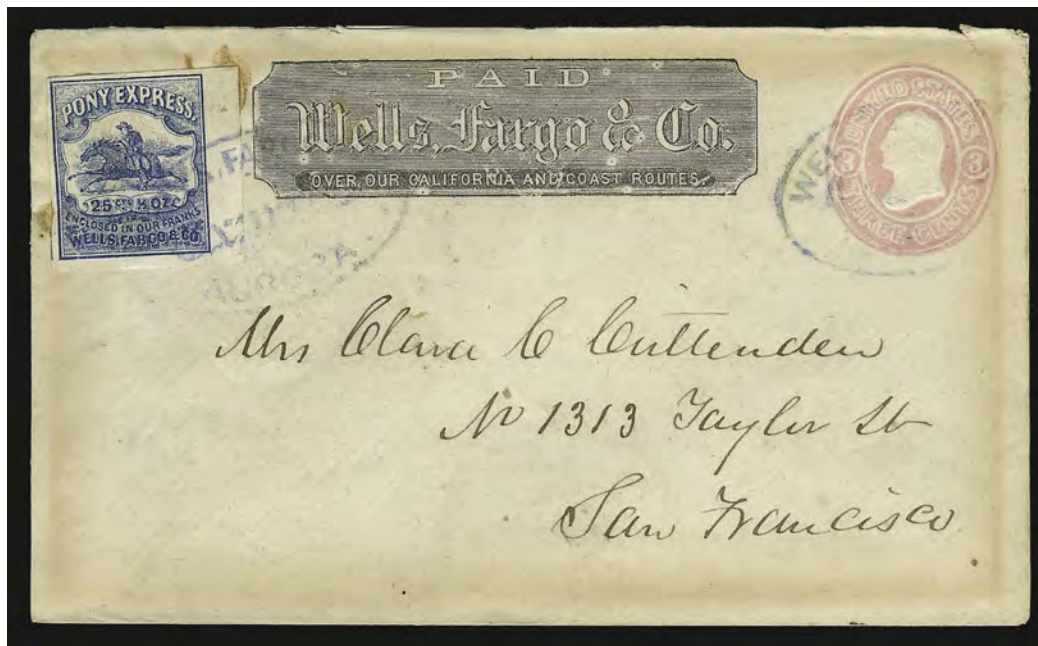 PONY EXPRESS.
25 CTS ½ OZ
ENCLOSED IN OUR FRANKS
WELLS, FARGO & CO
PAID
Wells, Fargo & Co.
OVER OUR CALIFORNIA AND COAST ROUTES.
UNITED STATES
3 3
THREE CENTS
WEL
AURORA
Mrs Clara C Cuttenden
No 1313 Taylor St
San Francisco